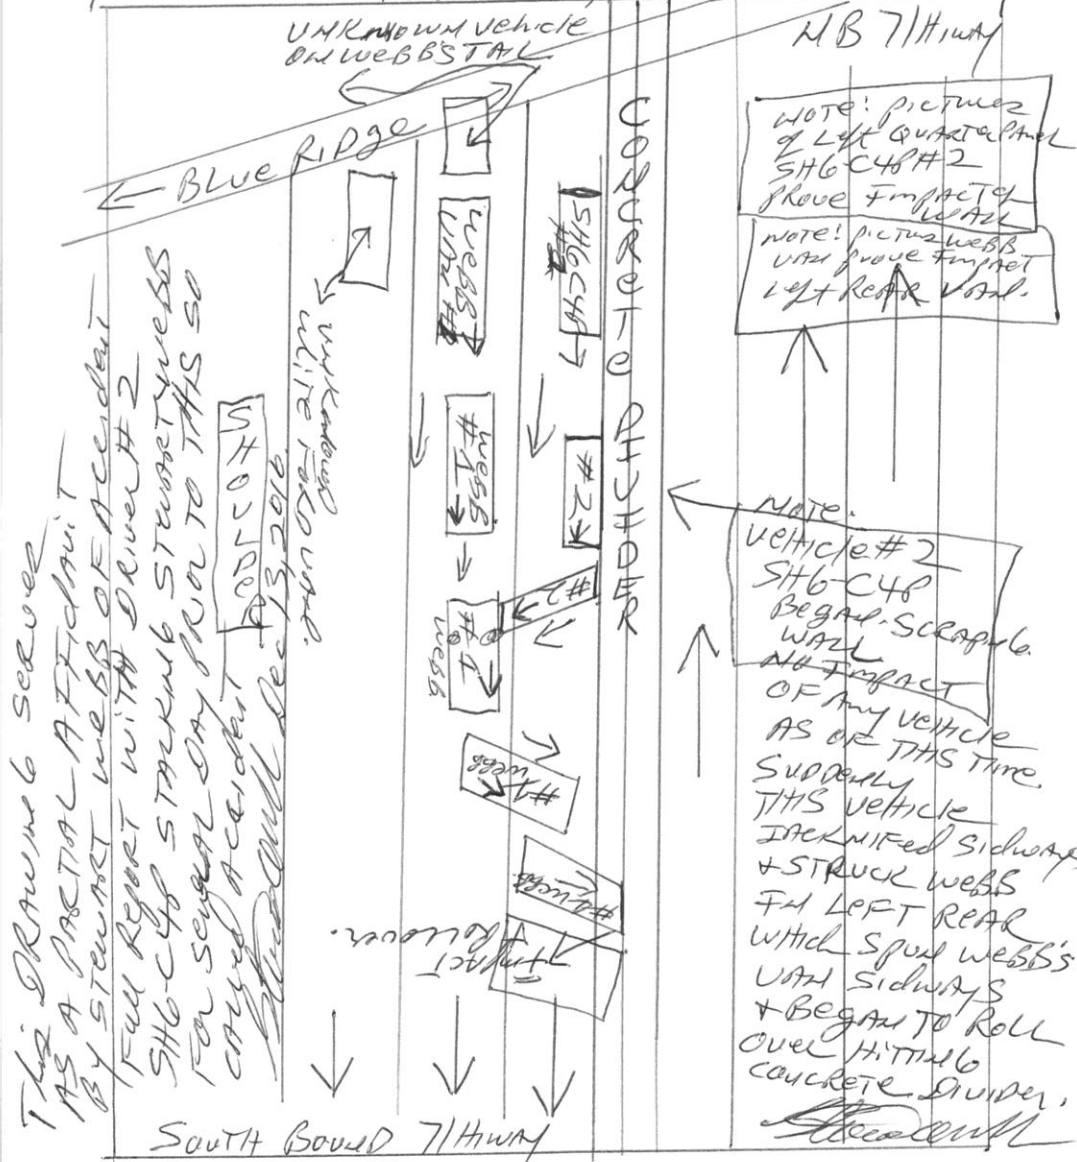 UNKNOWN VEHICLE
ON WEBB'S TAIL
NB 71 HIWAY
← BLUE RIDGE
NOTE! PICTURES
of LEFT QUARTER PANEL
SH6-C4P #2
PROVE IMPACT OF
WALL
NOTE! PICTURE WEBB
VAN PROVE IMPACT
LEFT REAR VAN.
WEBB
VAN #1
SH6C4P
#2
UNKNOWN
WHITE FORD VAN.
CONCRETE DIVIDER
WEBB
#1
#2
#2
#1
WEBB
#1 WEBB
#1 WEBB
IMPACT
+ ROLLOVER.
SHOULDER
NOTE.
VEHICLE #2
SH6-C4P
BEGAN SCRAPING
WALL
NO IMPACT
OF ANY VEHICLE
AS OF THIS TIME.
SUDDENLY
THIS VEHICLE
JACKNIFED SIDWAYS
+ STRUCK WEBB
IN LEFT REAR
WHICH SPUN WEBB'S
VAN SIDWAYS
+ BEGAN TO ROLL
OVER HITTING
CONCRETE DIVIDER.
THIS DRAWING SERVES
AS A PARTIAL AFFIDAVIT
BY STEWART WEBB OF ACCIDENT
FULL REPORT WITH DRIVER #2
SH6-C4P STALKING STEWART WEBB
FOR SEVERAL DAY PRIOR TO THIS SO
CALLED ACCIDENT
Dec 13, 2016
SOUTH BOUND 71 HIWAY